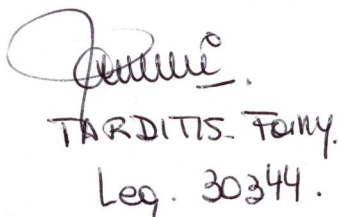 TARDITIS- Fanny.
Leg. 30344.